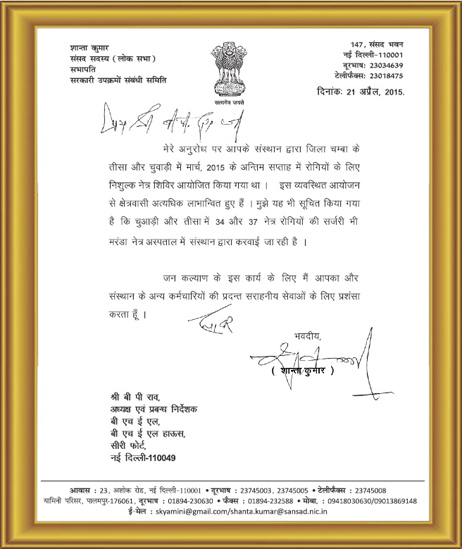 शान्ता कुमार
संसद सदस्य (लोक सभा)
सभापति
सरकारी उपक्रमों संबंधी समिति
सत्यमेव जयते
147, संसद भवन
नई दिल्ली-110001
दूरभाष: 23034639
टेलीफैक्स: 23018475
दिनांक: 21 अप्रैल, 2015.
मेरे अनुरोध पर आपके संस्थान द्वारा जिला चम्बा के
तीसा और चुवाड़ी में मार्च, 2015 के अन्तिम सप्ताह में रोगियों के लिए
निशुल्क नेत्र शिविर आयोजित किया गया था । इस व्यवस्थित आयोजन
से क्षेत्रवासी अत्यधिक लाभान्वित हुए हैं । मुझे यह भी सूचित किया गया
है कि चुआड़ी और तीसा में 34 और 37 नेत्र रोगियों की सर्जरी भी
मरंडा नेत्र अस्पताल में संस्थान द्वारा करवाई जा रही है ।
जन कल्याण के इस कार्य के लिए मैं आपका और
संस्थान के अन्य कर्मचारियों की प्रदत्त सराहनीय सेवाओं के लिए प्रशंसा
करता हूँ ।
भवदीय,
( शान्ता कुमार )
श्री बी पी राव,
अध्यक्ष एवं प्रबन्ध निर्देशक
बी एच ई एल,
बी एच ई एल हाऊस,
सीरी फोर्ट,
नई दिल्ली-110049
आवास : 23, अशोक रोड, नई दिल्ली-110001 • दूरभाष : 23745003, 23745005 • टेलीफैक्स : 23745008
यामिनी परिसर, पालमपुर-176061, दूरभाष : 01894-230630 • फैक्स : 01894-232588 • मोबा. : 09418030630/09013869148
ई-मेल : skyamini@gmail.com/shanta.kumar@sansad.nic.in